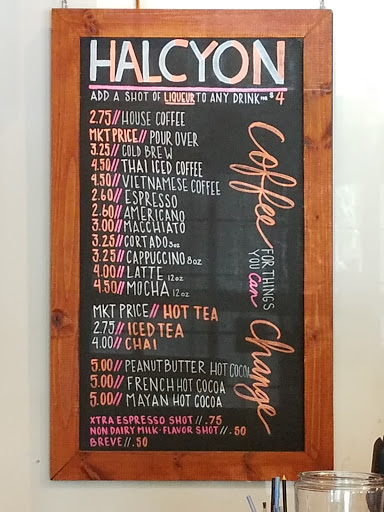 HALCYON
ADD A SHOT OF LIQUEUR TO ANY DRINK FOR $4
2.75//HOUSE COFFEE
MKT PRICE//POUR OVER
3.25//COLD BREW
4.50//THAI ICED COFFEE
4.50//VIETNAMESE COFFEE
2.60//ESPRESSO
2.60//AMERICANO
3.00//MACCHIATO
3.25//CORTADO 3oz
3.25//CAPPUCCINO 8oz
4.00//LATTE 12oz
4.50//MOCHA 12oz
MKT PRICE//HOT TEA
2.75//ICED TEA
4.00//CHAI
5.00//PEANUTBUTTER HOT COCOA
5.00//FRENCH HOT COCOA
5.00//MAYAN HOT COCOA
XTRA ESPRESSO SHOT//.75
NON DAIRY MILK-FLAVOR SHOT//.50
BREVE//.50
Coffee
FOR THINGS
YOU Can
Change